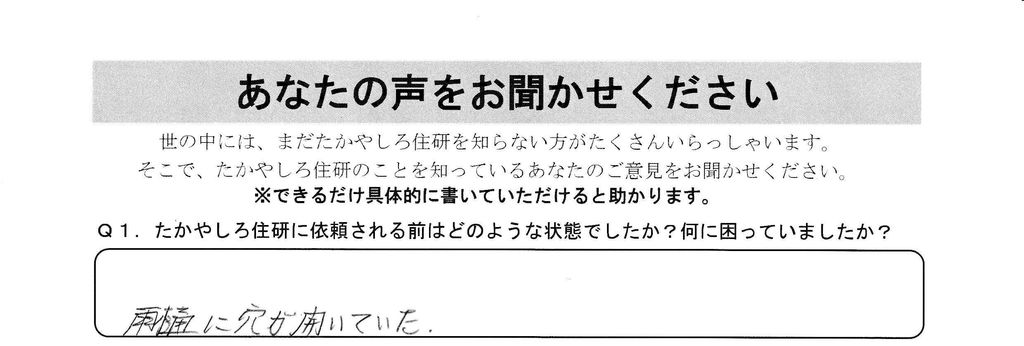 あなたの声をお聞かせください
世の中には、まだたかやしろ住研を知らない方がたくさんいらっしゃいます。
そこで、たかやしろ住研のことを知っているあなたのご意見をお聞かせください。
※できるだけ具体的に書いていただけると助かります。
Ｑ１．たかやしろ住研に依頼される前はどのような状態でしたか？何に困っていましたか？
雨樋に穴が開いていた.